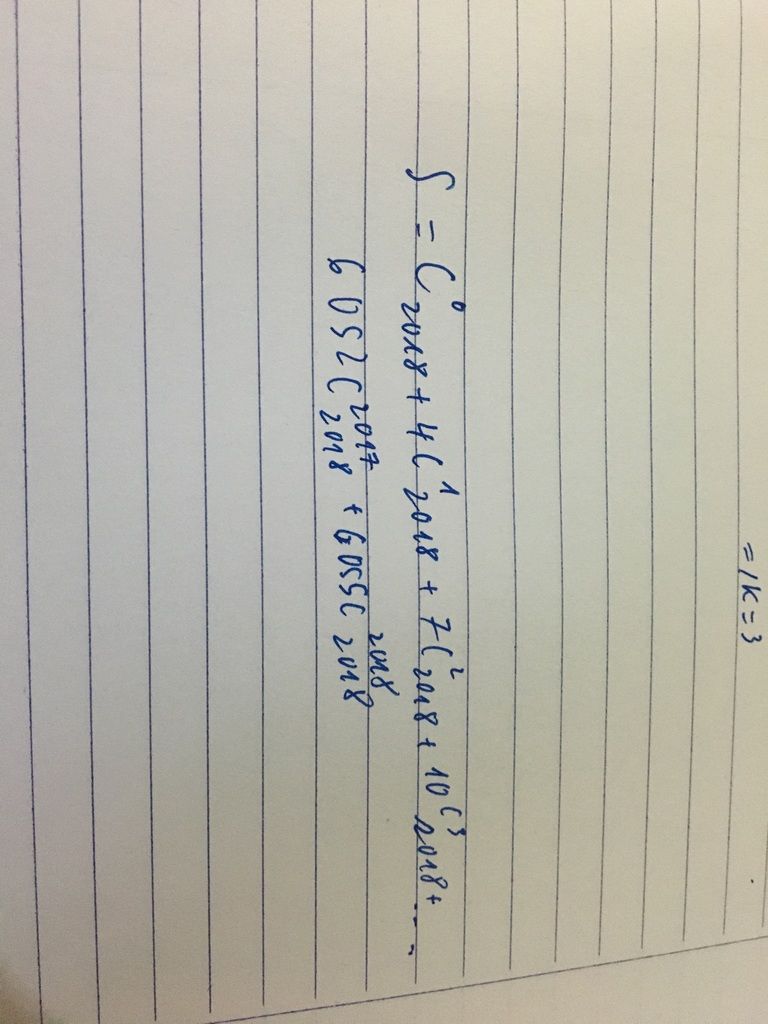 = 1 K = 3
S = C⁰₂₀₁₈ + 4C¹₂₀₁₈ + 7C²₂₀₁₈ + 10C³₂₀₁₈ + ....
6052C²⁰¹⁷₂₀₁₈ + 6055C²⁰¹⁸₂₀₁₈